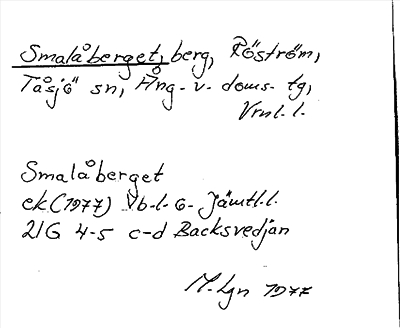 Smalåberget, berg, Röström,
Tåsjö sn, Ång. v. doms. tg,
Vrnl. l.
Smalåberget
ek (1977) Vb-l. o. Jämtl. l.
21G 4-5 c-d Backsvedjan
M. Lgn 1977